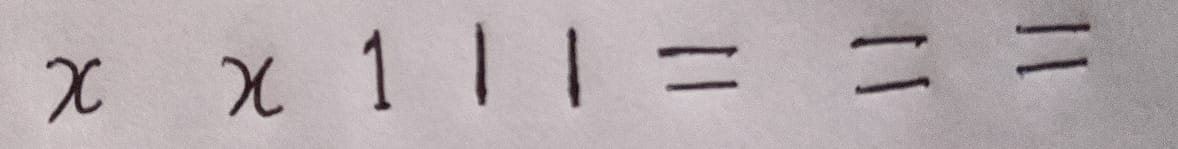 x x 1 | | = = =